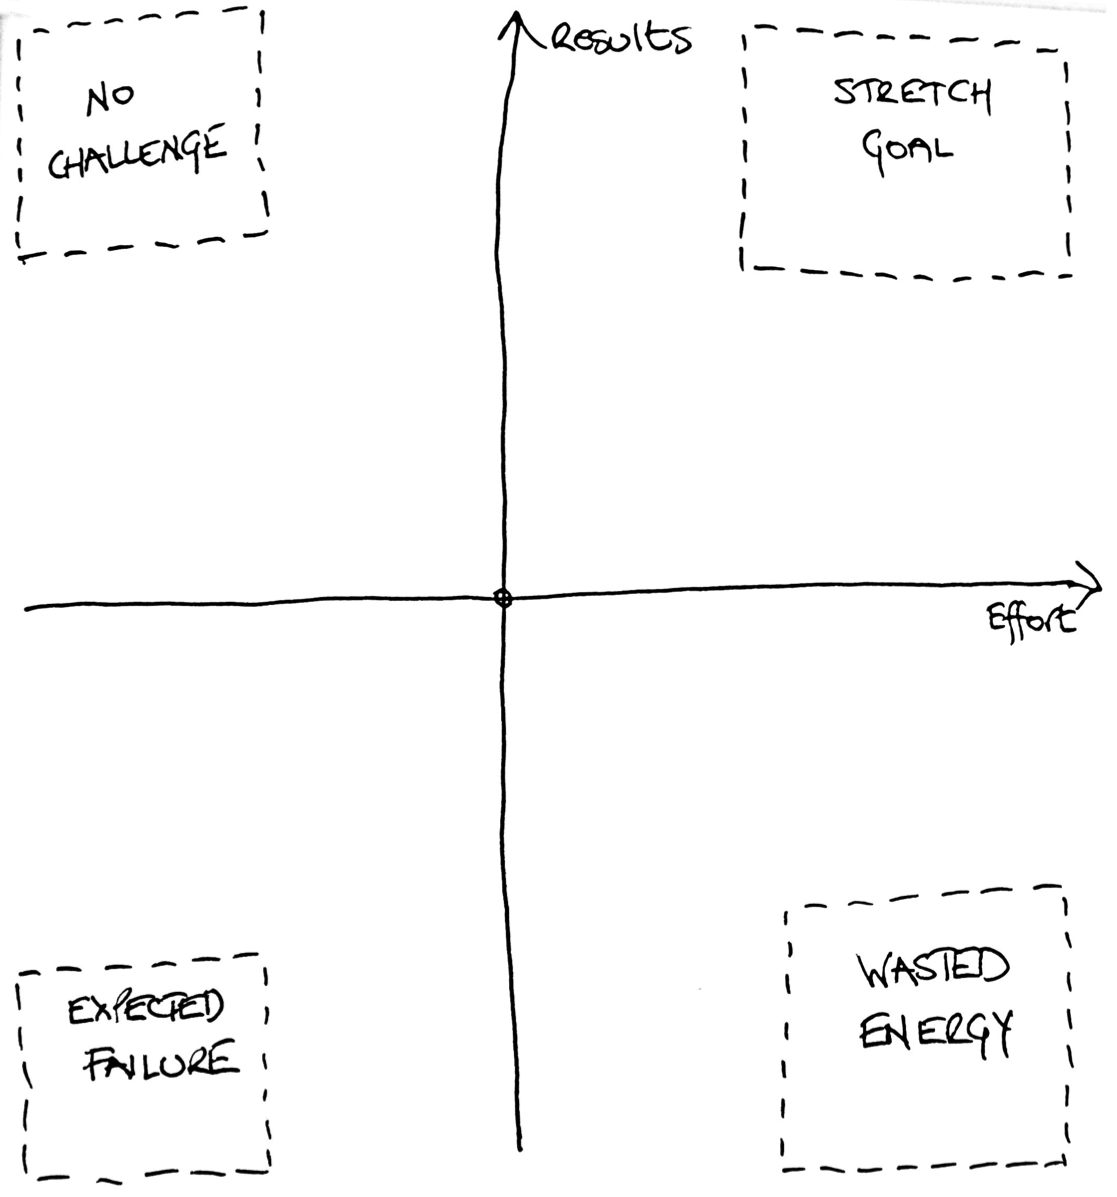 NO
CHALLENGE
Results
STRETCH
GOAL
Effort
EXPECTED
FAILURE
WASTED
ENERGY